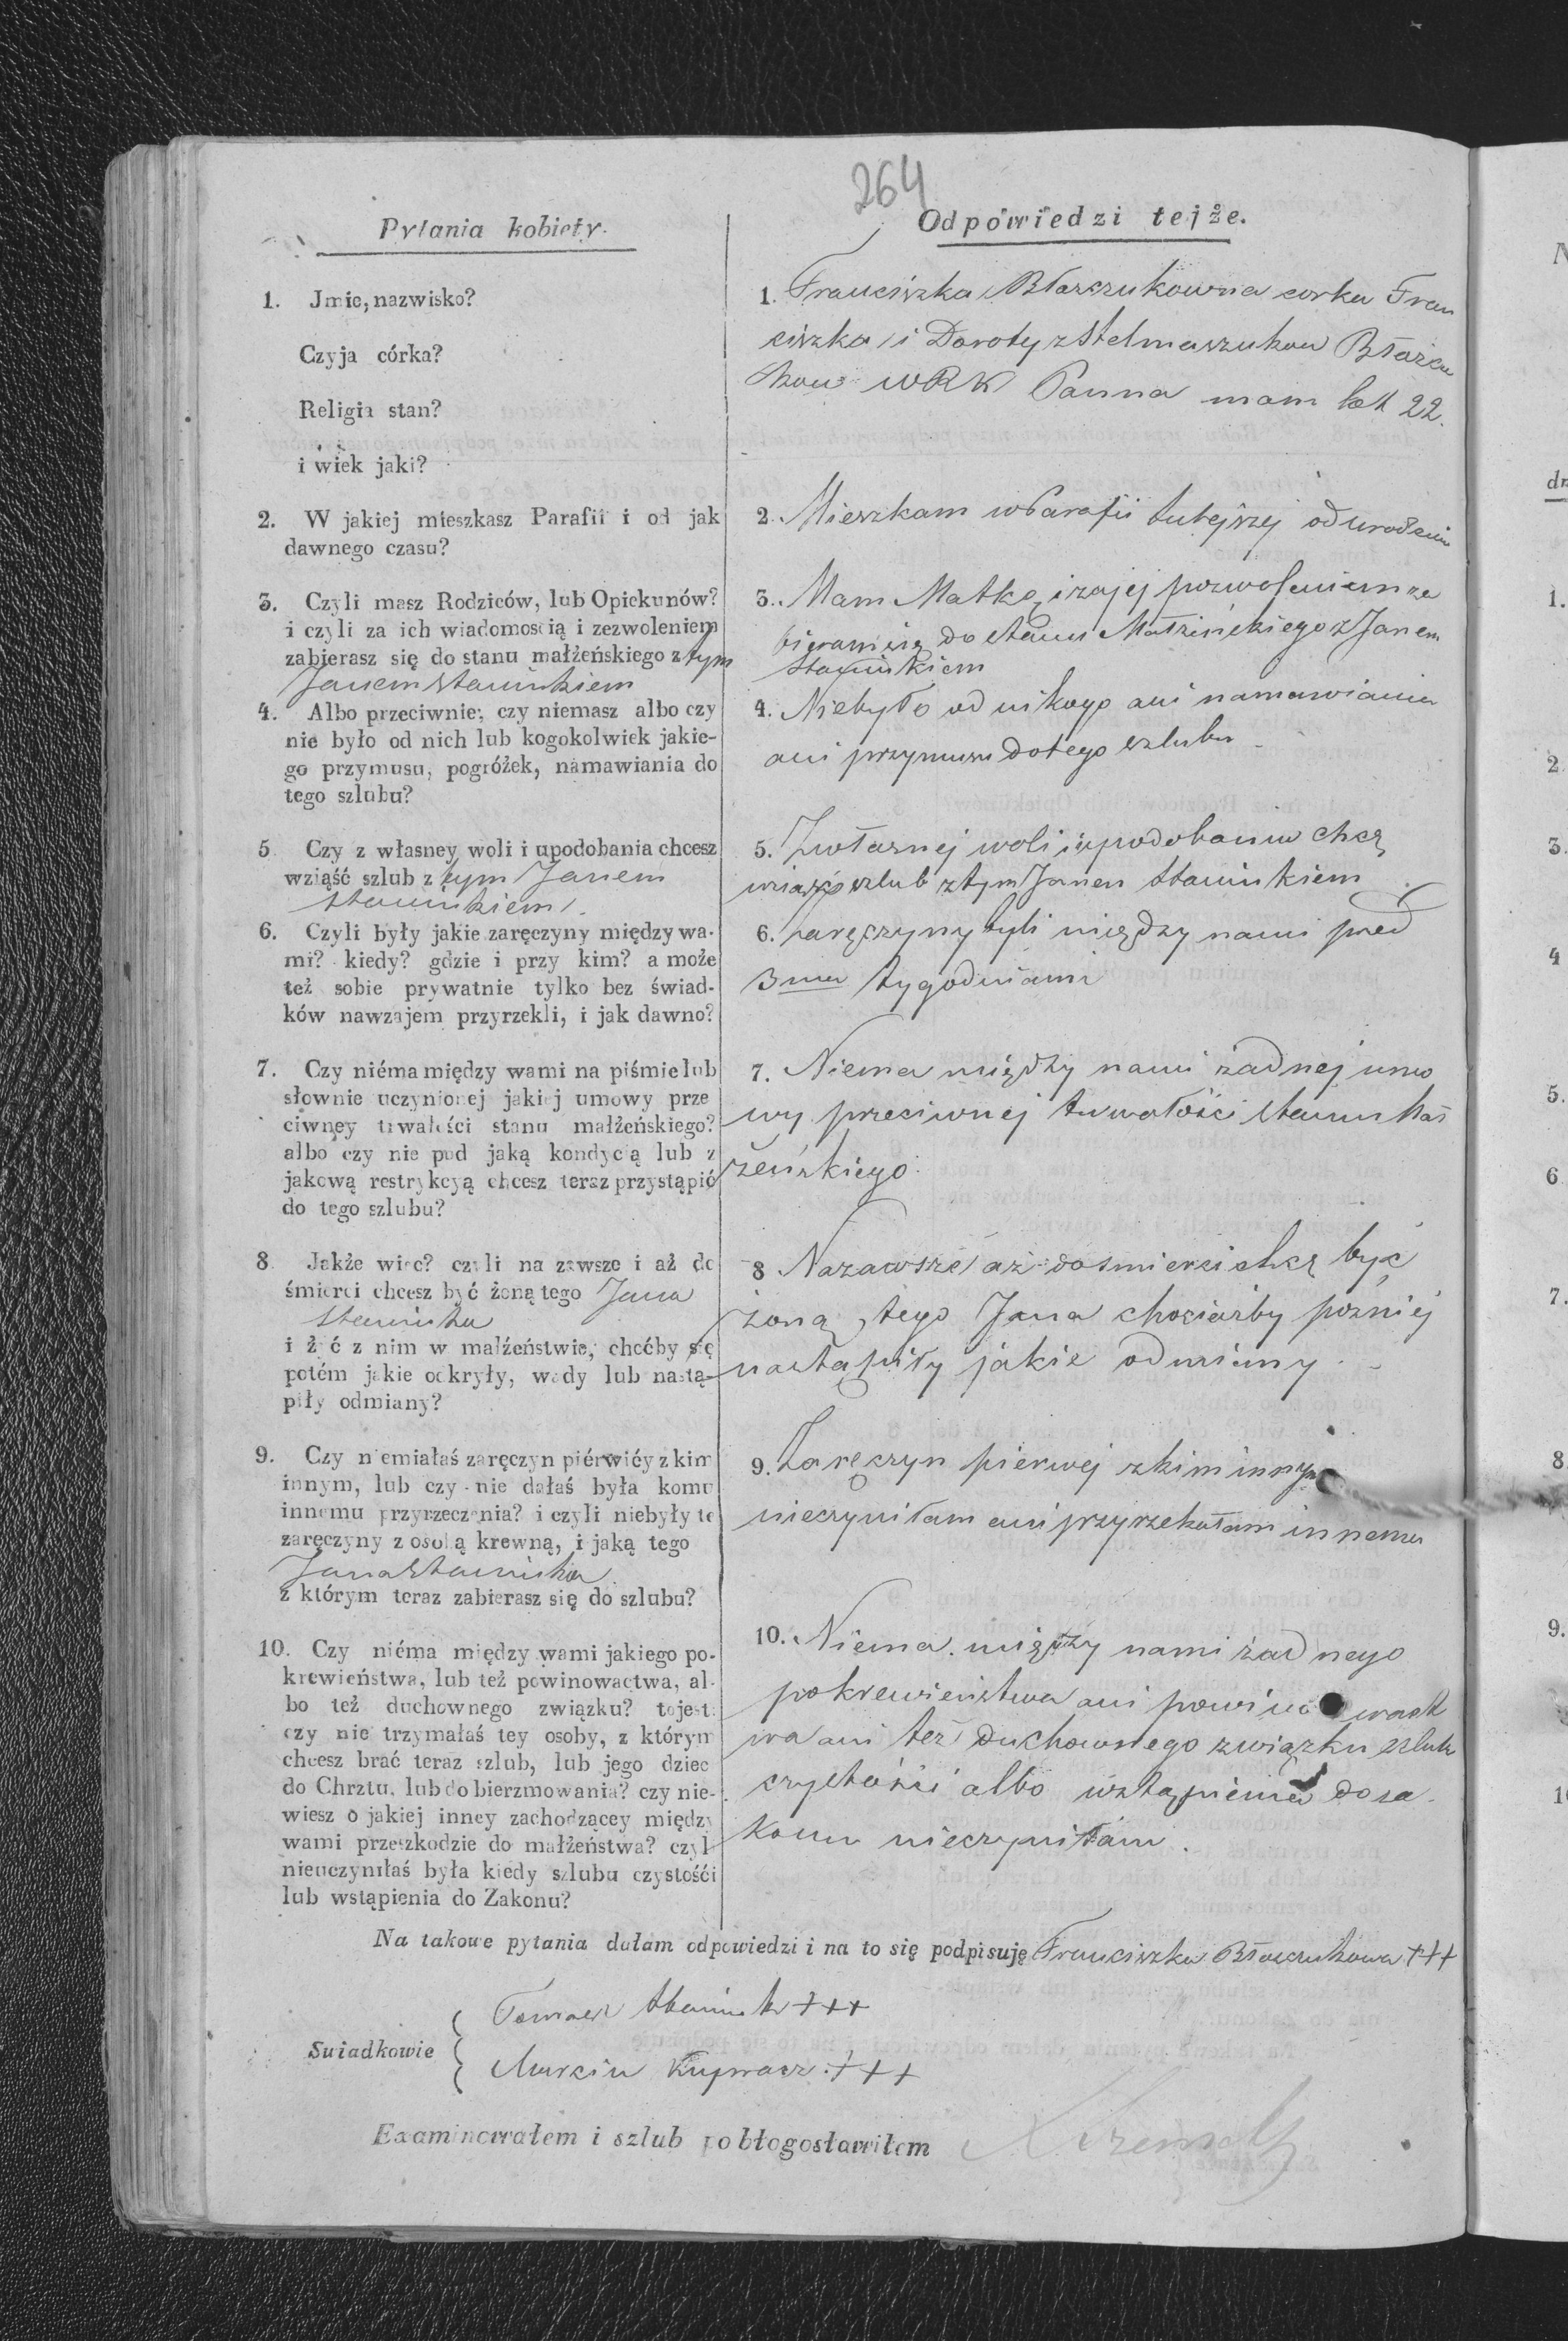 264
Pytania kobiety.
Odpowiedzi tejże.
1. Jmie, nazwisko?
Czyja córka?
Religia stan?
i wiek jaki?
1. Franciszka Błaszczukowna corka Fran
ciszka i Doroty z Stelmaszukow
WRK Panna mam lat 22.
2. W jakiej mieszkasz Parafii i od jak
dawnego czasu?
2. Mieszkam w Parafii tutejszej od urodzenia
3. Czyli masz Rodziców, lub Opiekunów?
i czyli za ich wiadomością i zezwoleniem
zabierasz się do stanu małżeńskiego z tym
Janem Staninkiem
3. Mam Matkę i za jej pozwoleniem za
bieram się do stanu Małżeńskiego z Janem
Staninkiem
4. Albo przeciwnie; czy niemasz albo czy
nie było od nich lub kogokolwiek jakie-
go przymusu, pogróżek, namawiania do
tego szlubu?
4. Niebyło od nikogo ani namawiania
ani przymusu do tego szlubu
5 Czy z własney woli i upodobania chcesz
wziąść szlub z tym Janem
Staninkiem
5. Z własnej woli i upodobania chcę
wziąść szlub z tym Janem Staninkiem
6. Czyli były jakie zaręczyny między wa-
mi? kiedy? gdzie i przy kim? a może
też sobie prywatnie tylko bez świad-
ków nawzajem przyrzekli, i jak dawno?
6. Zaręczyny byli między nami przed
3ma tygodniami
7. Czy niéma między wami na piśmie lub
słownie uczynionej jakiej umowy prze
ciwney trwałości stanu małżeńskiego?
albo czy nie pod jaką kondycią lub z
jakową restrykcyą chcesz teraz przystąpić
do tego szlubu?
7. Niema między nami żadnej umo
wy przeciwnej trwałości stanu Mał
żeńskiego
8 Jakże więc? czyli na zawsze i aż do
śmierci chcesz być żoną tego Jana
Staninka
i żyć z nim w małżeństwie, choćby się
potém jakie odkryły, wady lub nastą-
piły odmiany?
8 Nazawsze aż do śmierci chcę być
żoną tego Jana chociażby pozniej
nastąpiły jakie odmiany
9. Czy niemiałaś zaręczyn piérwićy z kim
innym, lub czy nie dałaś była komu
innemu przyrzeczenia? i czyli niebyły te
zaręczyny z osobą krewną, i jaką tego
Jana Staninka
z którym teraz zabierasz się do szlubu?
9. Zaręczyn pierwej z kim innym
nieczyniłam ani przyrzekałam innemu
10. Czy niéma między wami jakiego po-
krewieństwa, lub też powinowactwa, al-
bo też duchownego związku? tojest:
czy nie trzymałaś tey osoby, z którym
chcesz brać teraz szlub, lub jego dziec
do Chrztu, lub do bierzmowania? czy nie-
wiesz o jakiej inney zachodzącey między
wami przeszkodzie do małżeństwa? czyl
nieuczyniłaś była kiedy szlubu czystośći
lub wstąpienia do Zakonu?
10. Niema między nami żadnego
pokrewieństwa ani powino wact
wa ani też Duchownego związku szlub
czystości albo wstąpienia do za
konu nieczyniłam.
Na takowe pytania dałam odpowiedzi i na to się podpisuję Franciszka Błaszczukowa +++
Suiadkowie
Tomasz Staninek +++
Marcin +++
Examinowałem i szlub pobłogosławiłem